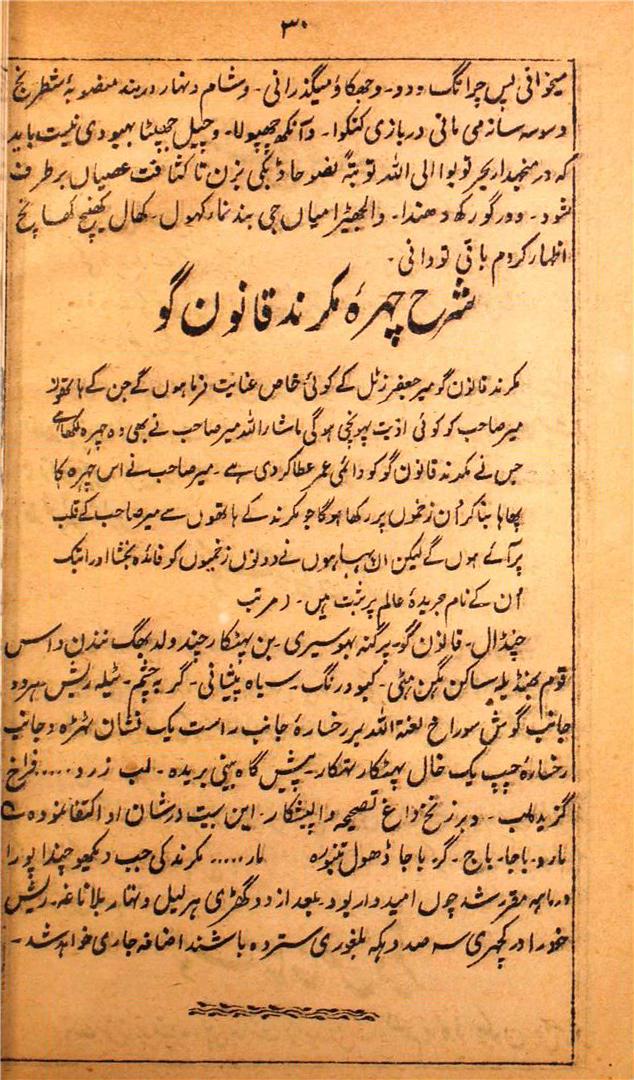 ۳۰
میخوانی پس چرانگ ودو۔ وجھکاؤ میگذرانی۔ وشام ونہار دربند منصوبۂ شطرنج
وسوسہ سانہ می مانی دربازی کنکوا۔ وآنکھ چھپولا۔ وچیل جھپٹا بہبودی نیست باید
کہ در منجدار بحر توبوا الی اللہ توبتہً نصوحا ڈبکی بزن تا کثافت عصیاں برطرف
شود۔ وور گورکھ دھندا۔ والجھیڑا میاں جی بند نما، کہول۔ کھال کھینچ کھانچ
اظہار کردم باقی تو دانی۔
شرح چہرۂ مکرند قانون گو
مکرند قانون گو میر جعفر زٹل کے کوئی خاص عنایت فرما ہوں گے جن کے ہاتھوں
میر صاحب کو کوئی اذیت پہونچی ہوگی ماشاء اللہ میر صاحب نے بھی وہ چہرہ لکھا ہے
جس نے مکرند قانون گو کو دائمی عمر عطا کر دی ہے۔ میر صاحب نے اس چہرہ کا
پھاہا بنا کر اُن زخموں پر رکھا ہوگا جو مکرند کے ہاتھوں سے میر صاحب کے قلب
پر آئے ہوں گے لیکن ان پھاہوں نے دونوں زخمیوں کو فائدہ بخشا اور ابتک
اُن کے نام جریدۂ عالم پر ثبت ہیں۔ (مرتب
چنڈال۔ قانون گو۔ پرگنہ بہوسیری۔ بن پھٹکار چند ولد بھگ نندن داس
قوم بھنڈیلہ ساکن مگہن ہٹی۔ کبود رنگ۔ سیاہ پیشانی۔ گربہ چشم۔ ٹیلہ ریش ہردو
جانب گوش سوراخ لعنۃ اللہ بر رخسارۂ جانب راست یک نشان تھڑہ وجانب
رخسارۂ چپ یک خال پھٹکار تھتکار۔ پیش گاہ بینی بریدہ۔ لب زرد..... فراخ
گزیدہ لب۔ وبر زنخ داغ تصیحہ واپیشکار۔ این بیت درشان او اکتفا نمودہ
مارو۔ باجا۔ باج۔ گر۔ باجا ڈھول تنبورہ مار..... مکرند کی جب دیکھو چندا پورا
درماہہ مقرر شد چوں امیدوار بود۔ بعد از دو گھڑی ہر لیل ونہار بلاناغہ۔ ریش
خود را در کچہری سہ صد دہکہ بلغوری سترده باشند اضافہ جاری خواہد شد۔